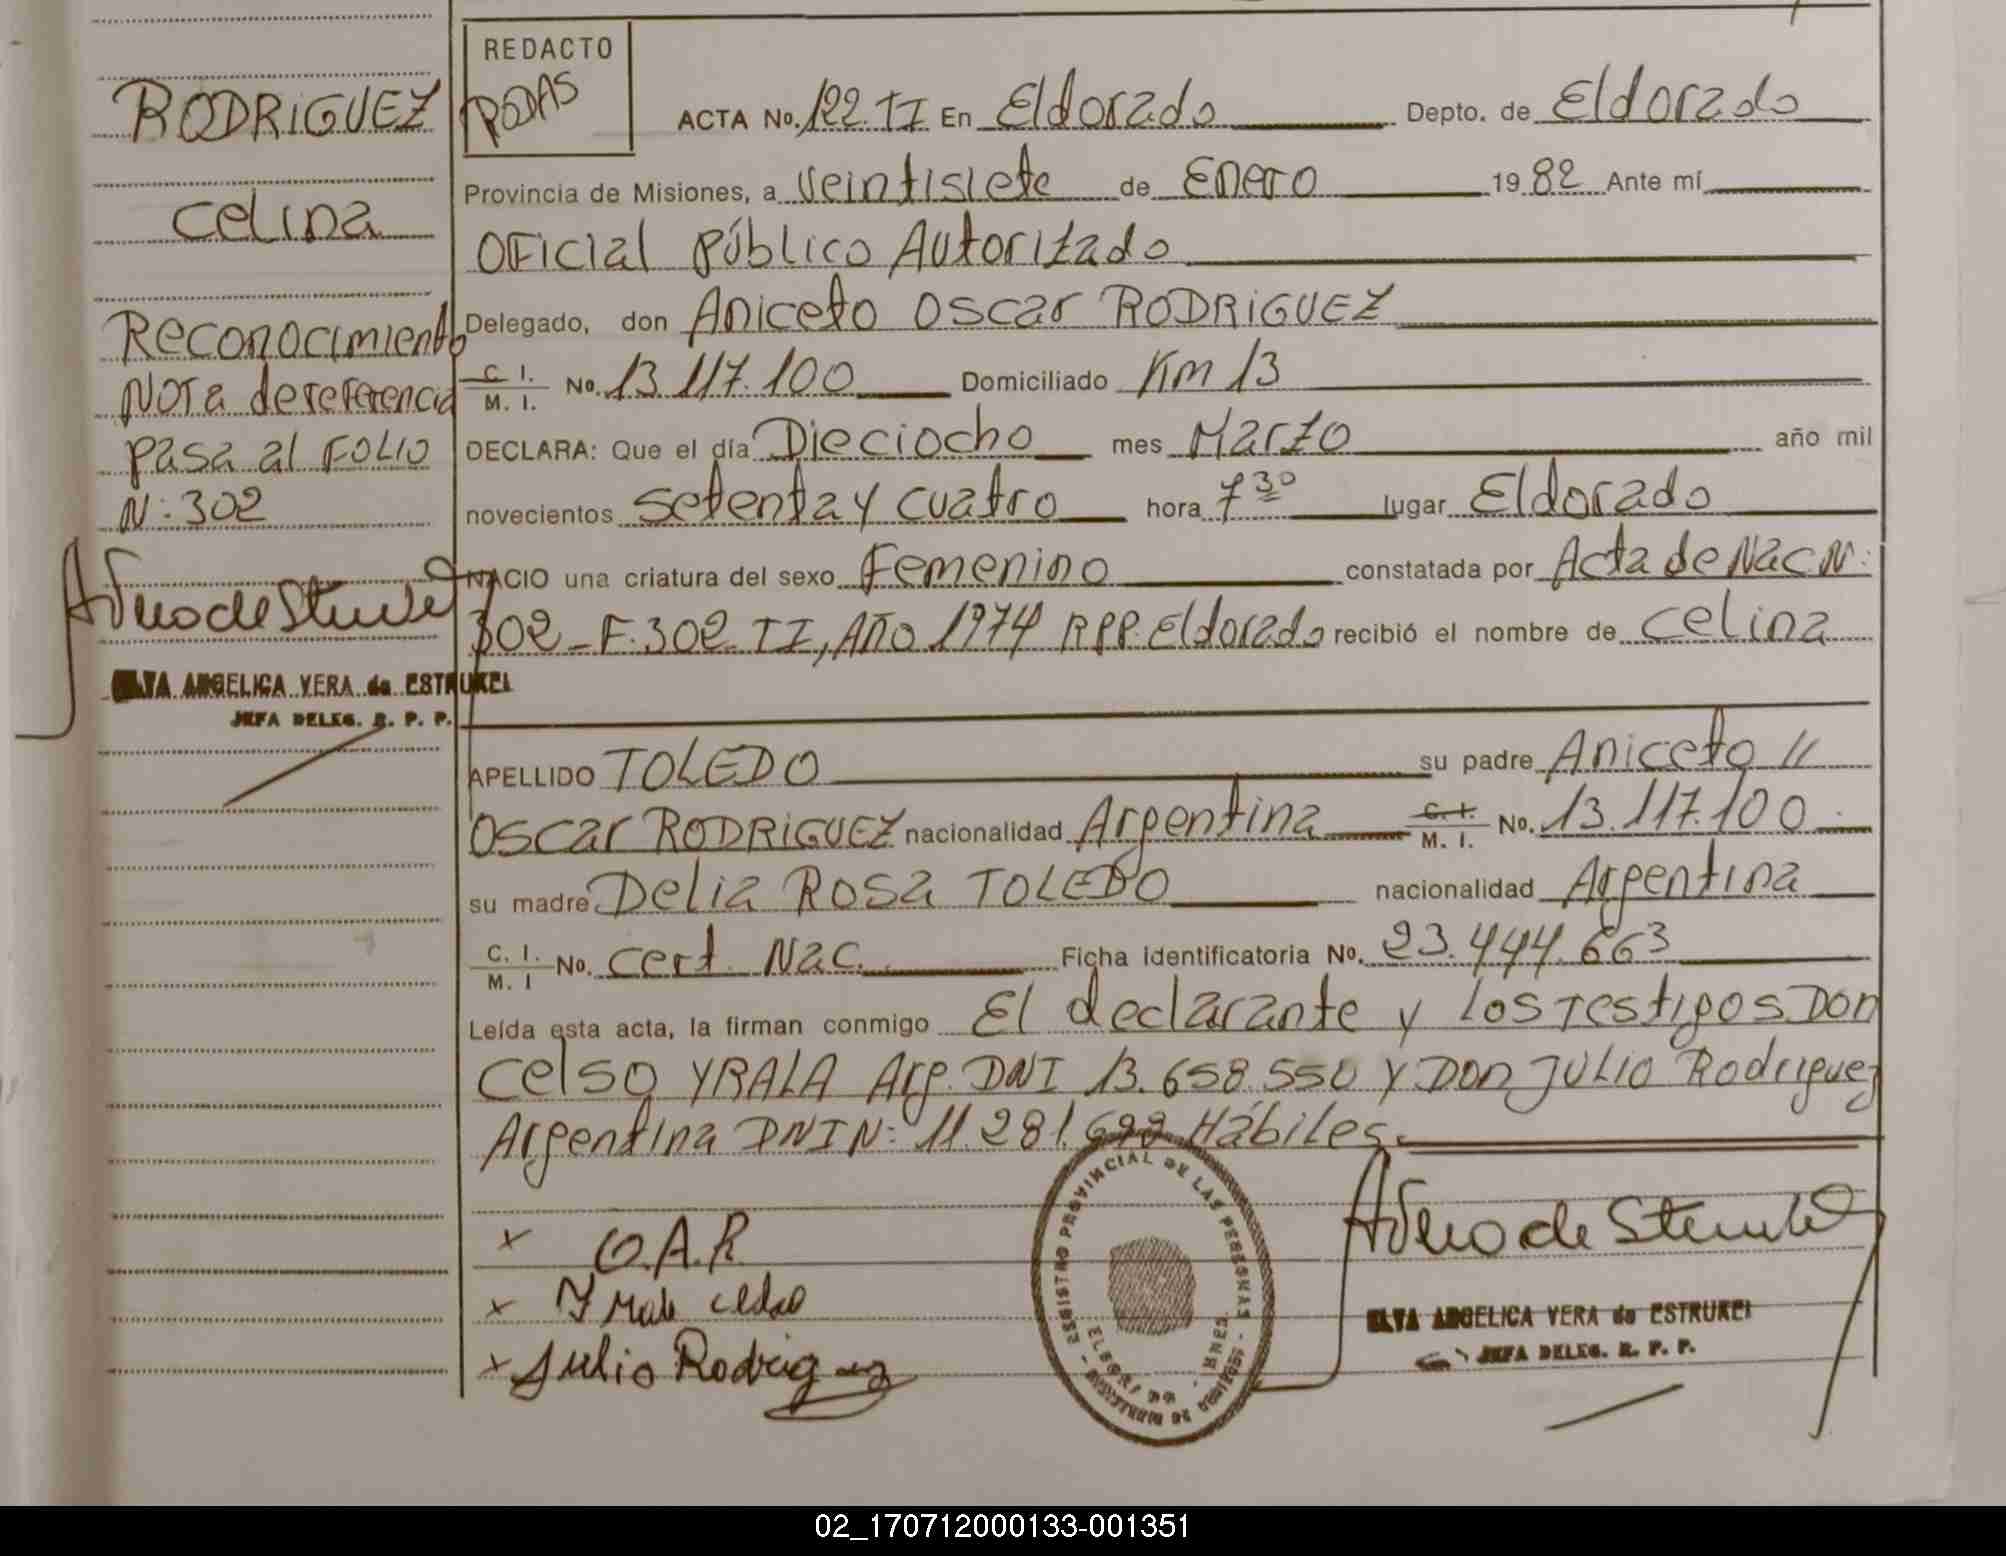 RODRIGUEZ
Celina
Reconocimiento
Nota de referencia
pasa al FOLIO
N: 302
ELVA ANGELICA VERA de ESTRUKEL
JEFA DELEG. R. P. P.
REDACTO
RODAS
ACTA No. 122. TI En Eldorado Depto. de Eldorado
Provincia de Misiones, a veintisiete de Enero 1982 Ante mí
Oficial público Autorizado
Delegado, don Aniceto Oscar RODRIGUEZ
C. I. M. I. No. 13.117.100 Domiciliado Km 13
DECLARA: Que el día Dieciocho mes Marzo año mil
novecientos setenta y cuatro hora 7 30 lugar Eldorado
NACIO una criatura del sexo Femenino constatada por Acta de Nac N:
302 - F. 302 TI, Año 1974 RPP. Eldorado recibió el nombre de Celina
APELLIDO TOLEDO su padre Aniceto //
Oscar RODRIGUEZ nacionalidad Argentina C. I. M. I. No. 13.117.100
su madre Delia Rosa TOLEDO nacionalidad Argentina
C. I. M. I No. Cert. Nac. Ficha identificatoria No. 23.444.663
Leída esta acta, la firman conmigo El declarante y los Testigos Don
Celso YRALA Arg. DNI 13.658.550 y Don Julio Rodriguez
Argentina DNI N: 11.281. Hábiles.
x O.A.R
x
x Julio Rodriguez
REGISTRO PROVINCIAL DE LAS PERSONAS
ELDORADO - MNES.
ELVA ANGELICA VERA de ESTRUKEL
JEFA DELEG. R. P. P.
02_170712000133-001351